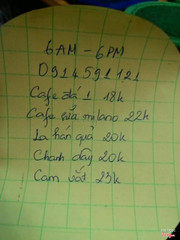 6AM - 6PM
0914591121
Cafe đá 1 18k
Cafe sữa milano 22k
La hán quả 20k
Chanh dây 20k
Cam vắt 25k